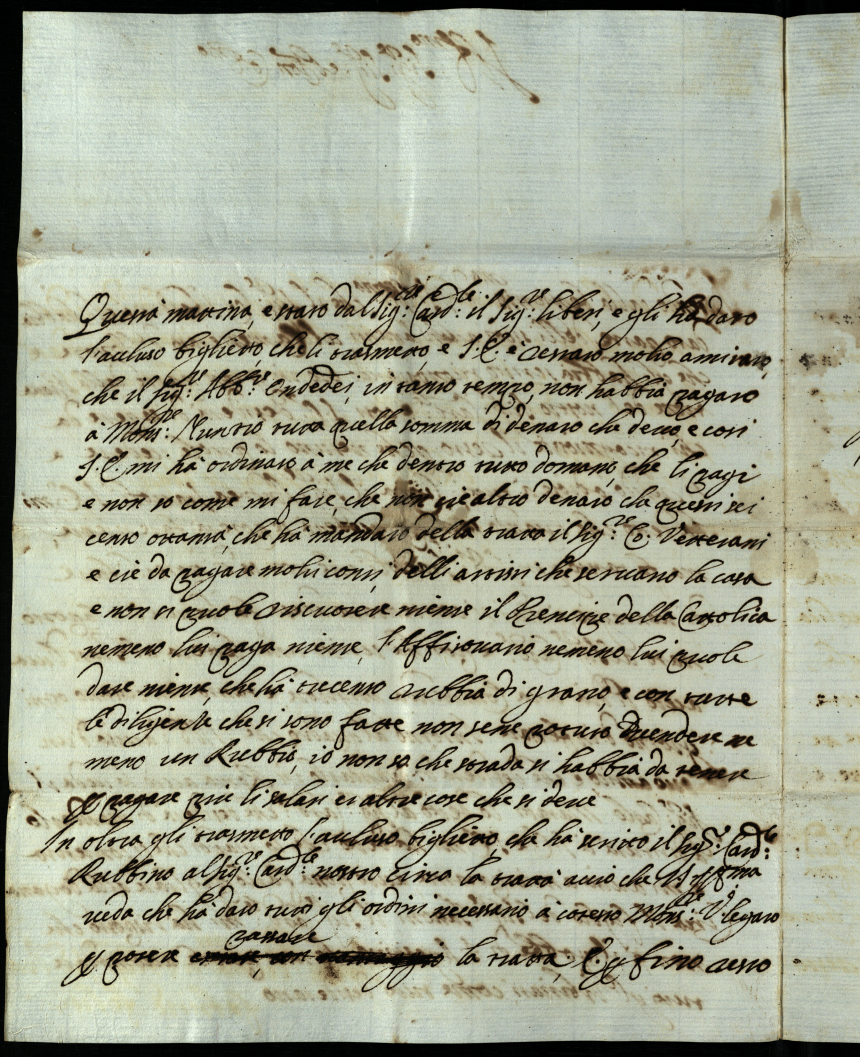 Questa mattina, è stato dal Sig:re Card:le il Sig:re liberi, e gli ha dato
l'accluso biglietto, che li trasmetto, e S. E. è restato molto amirato,
che il Sig:re Abb:e Ondedei, in tanto tempo, non habbia pagato
à Mons:re Nuntio tutta quella somma di denaro che deve, e cosi
S. E. mi hà ordinato à me che dentro tutto domani, che li paghi
e non so come mi fare, che non cie altro denaro che questi sei
cento ottanta, che hà mandato della tratta il Sig:re C. Vetterani
e cie da pagare molti conti, delli artisti che servano la casa
e non si puole riscuotere niente il Prencipe della Cattolica
nemeno lui paga niente, l'Affittuario nemeno lui vuole
dare niente, che hà trecento rubbia di grano, e con tutte
le diligenze che si sono fatte non sene potuto vendere ne
meno un Rubbio, io non so che strada si habbia da tenere
p pagare qui li salari et altre cose che si deve
In oltra gli trasmetto l'accluso biglietto, che hà scritto il Sig:re Card:le
Rubbino al Sig:re Card:le nostro circa la tratta acciò che
veda che hà dato tutti gli ordini necessario à cotesto Mons:re V: legato
p potere cavare la tratta, E p fine resto